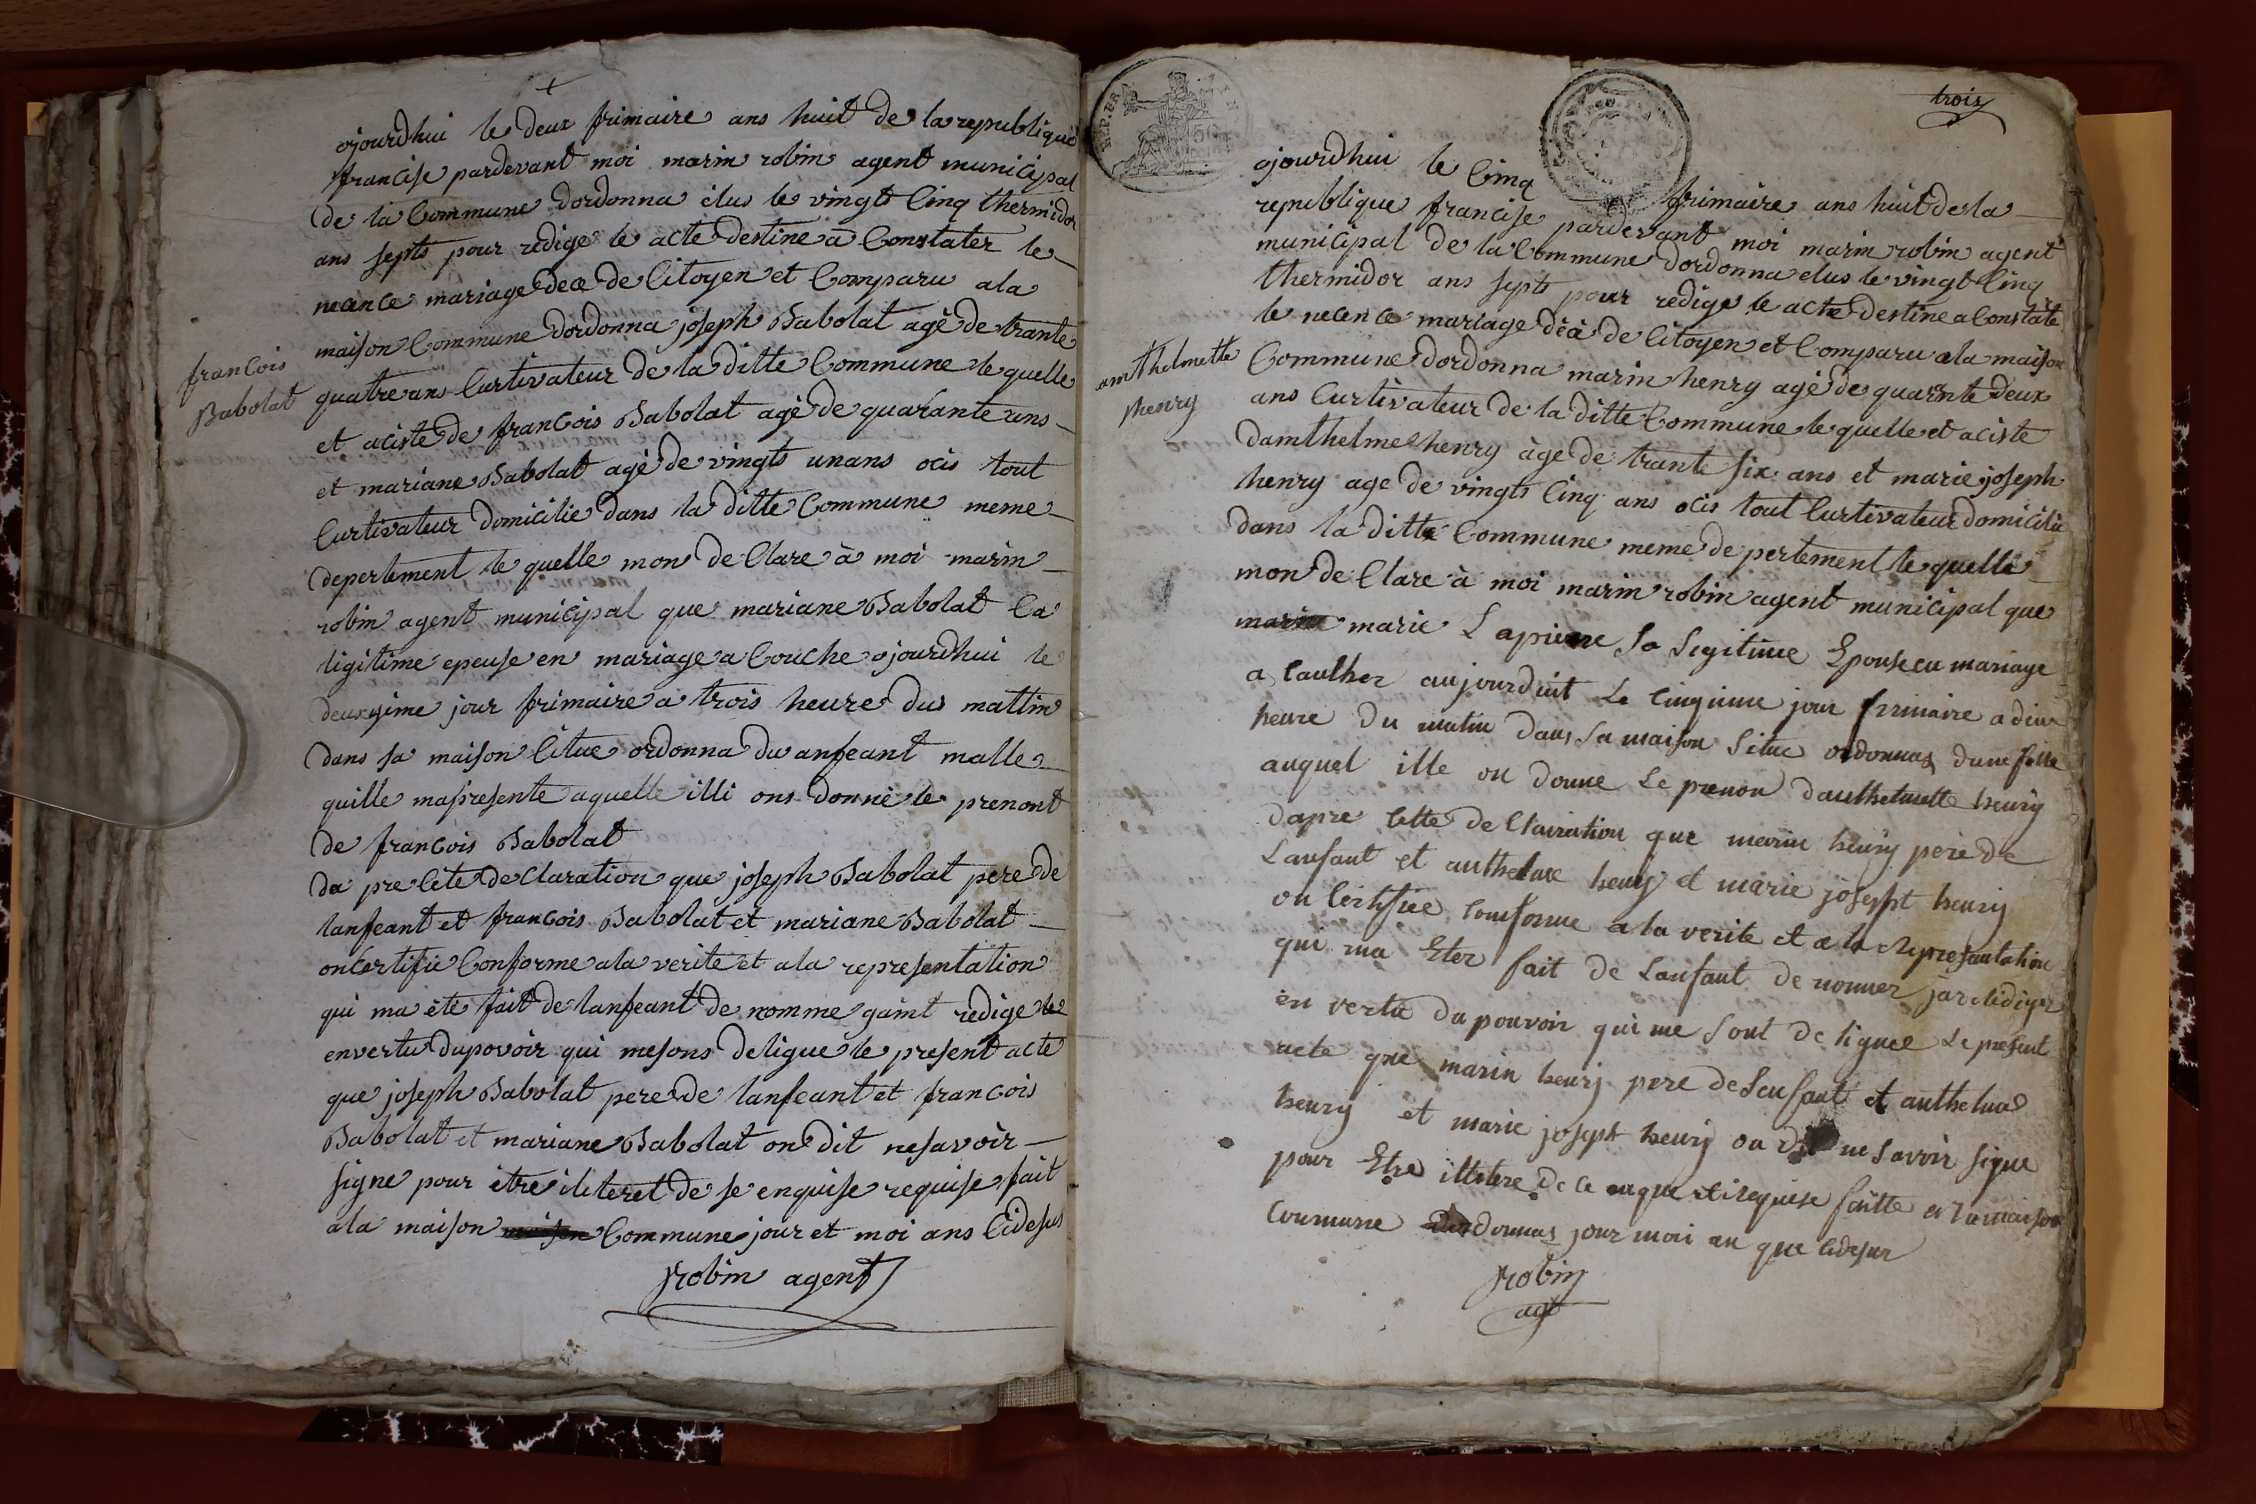 ojourdhui le deux frimaire ans huit de la republique
francise pardevant moi marin robin agent municipal
de la Commune dordonna élus le vingt Cinq thermidor
ans septs pour redige le acte destine a Constater le
necence mariage dece de Citoyen et Comparu ala
maison Commune dordonna joseph Babolat agé de trante
quatre ans Curtivateur de la ditte Commune le quelle
et aciste de francois Babolat agé de quarante ans
et mariane Babolat agé de vingts unans ocis tout
Curtivateur domicilie dans la ditte Commune meme
depertement le quelle mon de Clare à moi marin
robin agent municipal que mariane Babolat Ca
ligitime epeuse en mariage a Couche ojourdhui le
deuxgime jour frimaire a trois heure dus mattin
dans sa maison Citue ordonna du anfeant malle
quille mapresente aquelle illi ons donné le prenont
de francois Babolat
da pre Cete de Claration que joseph Babolat pere de
lanfeant et francois Babolat et mariane Babolat
on Certifié Conforme ala verite et ala representation
qui ma été fait de lanfeant de nomme gaint redige
envertu dupovoir qui mesons deligue le present acte
que joseph Babolat pere de lanfeant et francois
Babolat et mariane Babolat on dit nesavoir
signe pour être iliteret de se enquise requise fait
ala maison Commune jour et moi ans Cidesus
robin agent
francois
Babolat
trois
ojourdhui le Cinq frimaire ans huit de la
republique francise pardevant moi marin robin agent
municipal de la Commune dordonna elus le vingt Cinq
thermidor ans septs pour redige le acte destine a Constate
le necence mariage décé de Citoyen et Comparu ala maison
Commune dordonna marin henry agé de quarnte deux
ans Curtivateur de la ditte Commune le quelle et aciste
damthelme henry àge de trante six ans et marie joseph
henry age de vingts Cinq ans ocis tout Curtivateur domicilie
dans la ditte Commune meme depertement le quelle
mon de Clare à moi marin robin agent municipal que
marie Lapierre Sa Legitime Epouse en mariage
a Caulher aujourduit Le Cinqieme jour frimaire a dix
heure Du matin Dans Sa maison Situe ordonnas dune fille
auquel ille on donne Le prenon dauthelmette henry
dapre Cette de Clairation que marin henry pere De
Lanfant et anthelme henry et marie joseph henry
on Certifiee Comforme a la verite et a la representation
qui ma Eter fait de Lanfant de nommer jai redigez
en vertu du pouvoir qui me Sont De liguee Le present
acte que marin henry pere de Lenfant et anthelme
henry et marie joseph henry on dit ne Savoir signe
pour Etre illitere De Ce enque et requise faitte a la maison
Commune Dordonnas jour moi an que Cidesur
robin
agt
amthelmette
henry